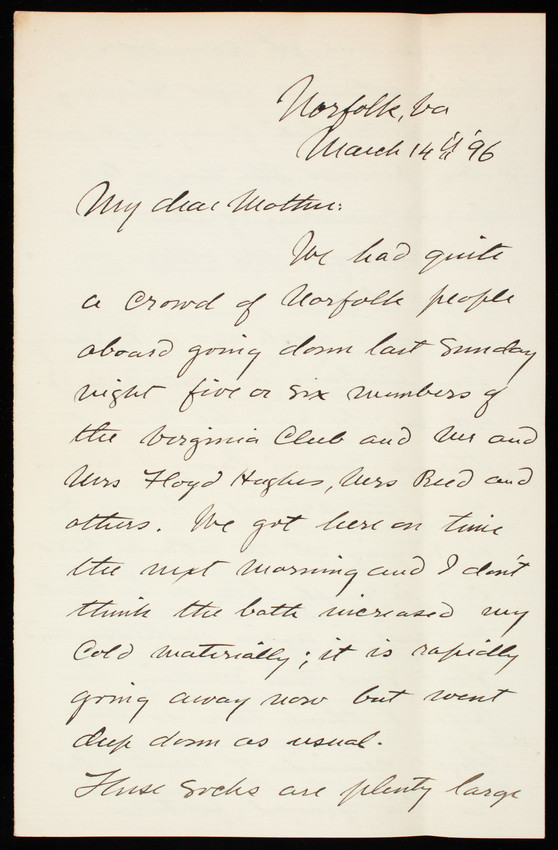 Norfolk, Va
March 14th '96
My dear Mother:
We had quite
a crowd of Norfolk people
aboard going down last Sunday
night five or six members of
the Virginia Club and Mr and
Mrs Floyd Hughes, Mrs Reed and
others. We got here on time
the next morning and I don't
think the bath increased my
cold materially; it is rapidly
going away now but went
deep down as usual.
These socks are plenty large